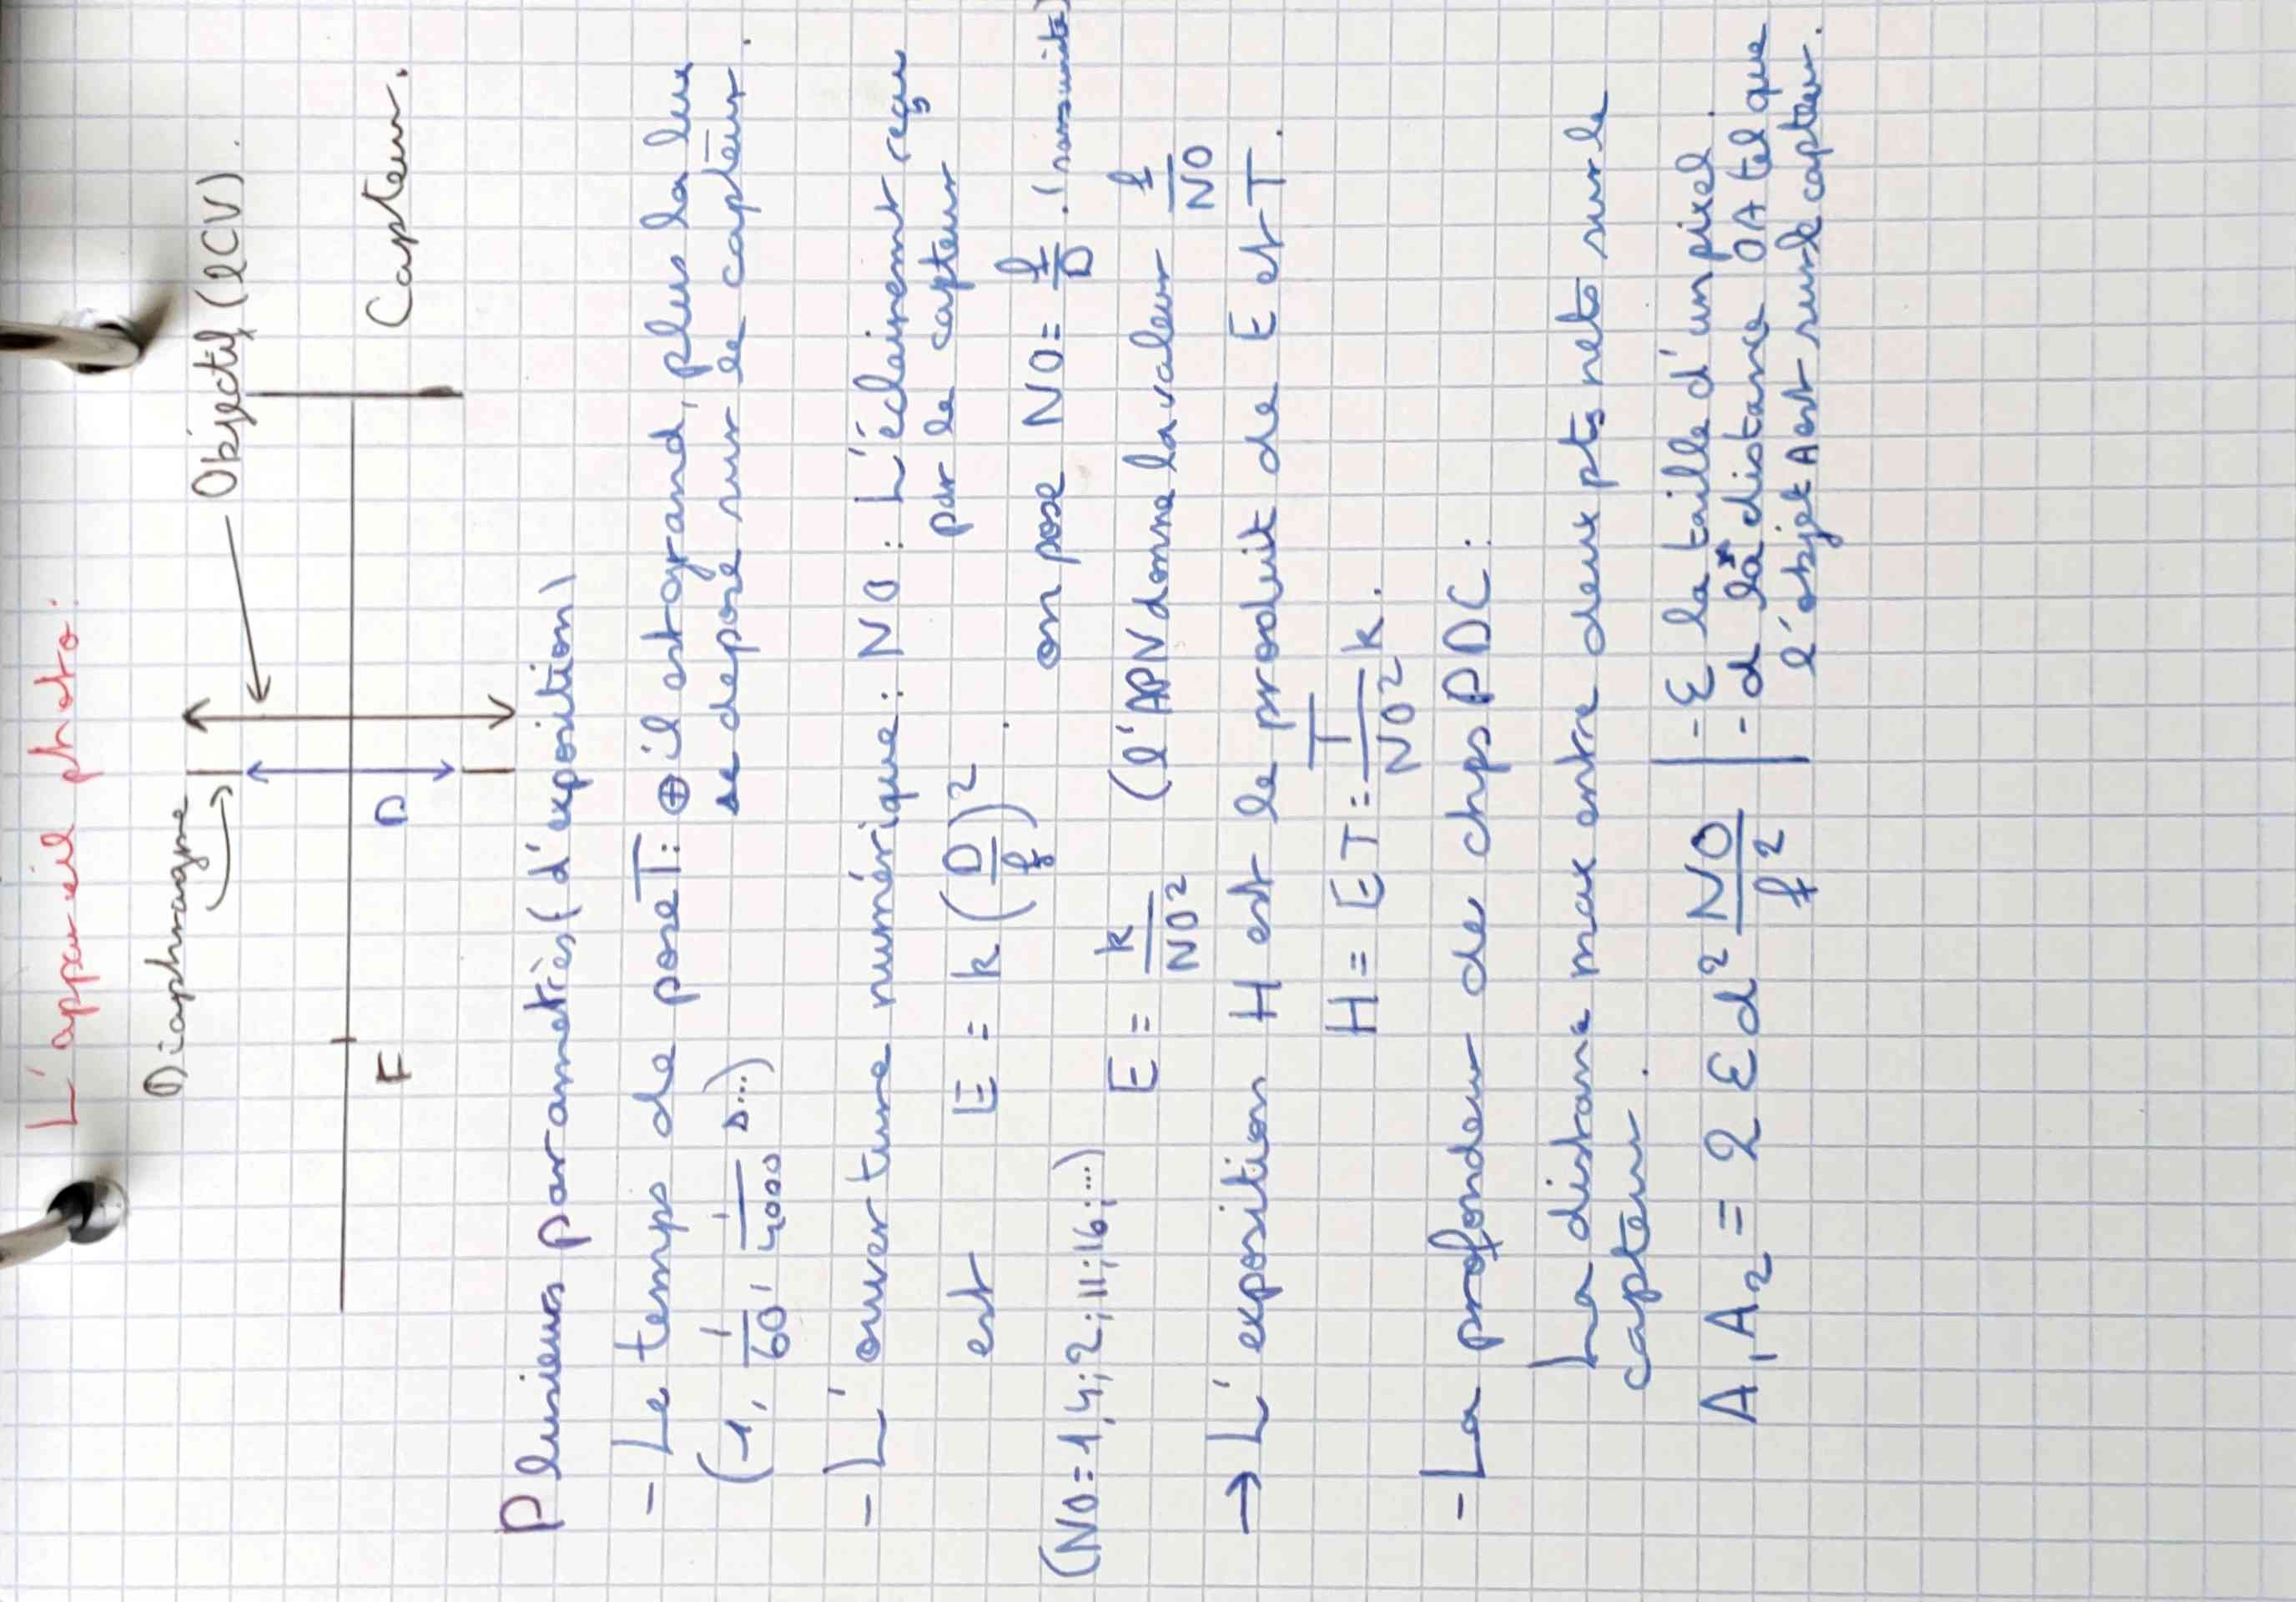 L'appareil photo:
Diaphragme
Objectif (LCV).
D
F
Capteur.
Plusieurs paramètres (d'exposition)
- Le temps de pose T: ⊕ il est grand, plus la lux
se dépose sur le capteur.
(1, 1/60, 1/4000 s...)
- L'ouverture numérique: NO: L'éclairement reçu
par le capteur
est E = k (D/f)²
on pose NO = f/D. (sans unité)
(NO = 1,4; 2; 11; 16; ...) E = k/NO² (l'APN donne la valeur f/NO
→ L'exposition H est le produit de E et T.
H = ET = T/NO² k.
- La profondeur de chps PDC:
La distance max entre deux pts nets sur le
capteur.
A₁A₂ = 2 ε d² NO/f²
- ε la taille d'un pixel.
- d la distance OA tel que
l'objet A est sur le capteur.